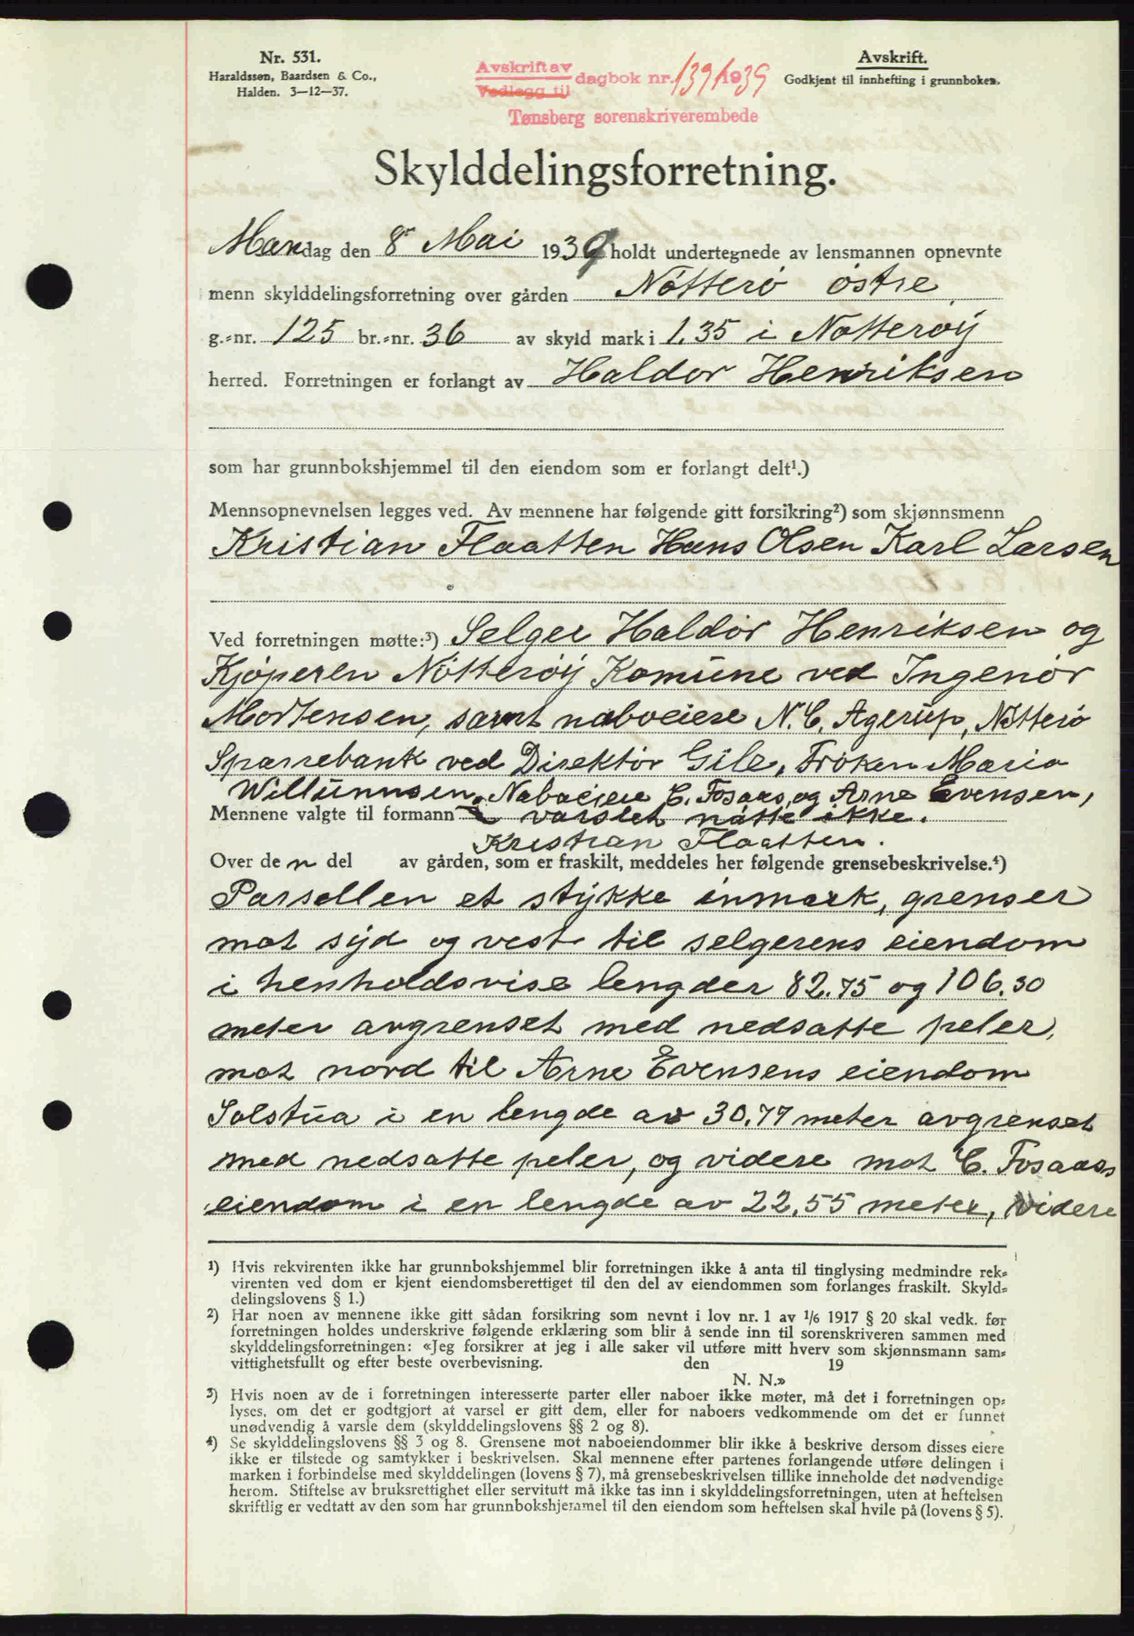 Nr. 531.
Haraldssen, Baardsen & Co.,
Halden. 3—12—37.
Avskrift av
Vedlegg til
dagbok nr. 1391 1939
Tønsberg sorenskriverembede
Avskrift.
Godkjent til innhefting i grunnboken.
Skylddelingsforretning.
Mandag den 8 Mai 1939 holdt undertegnede av lensmannen opnevnte
menn skylddelingsforretning over gården Nötterö östre
g.-nr. 125 br.-nr. 36 av skyld mark i 1.35 i Nötteröy
herred. Forretningen er forlangt av Haldor Henriksen
som har grunnbokshjemmel til den eiendom som er forlangt delt¹.)
Mennsopnevnelsen legges ved. Av mennene har følgende gitt forsikring²) som skjønnsmenn
Kristian Flaatten Hans Olsen Karl Larsen
Ved forretningen møtte:³) Selger Haldor Henriksen og
Kjöperen Nötteröy Komune ved Ingenör
Mortensen, samt naboeiere N. C. Agerup, Nötterö
Sparrebank ved Direktör Gile, Fröken Maria
Willumnsen. Naboeiere C. Fosaas, og Arne Evensen,
Mennene valgte til formann varslet møtte ikke.
Kristian Flaatten.
Over den del av gården, som er fraskilt, meddeles her følgende grensebeskrivelse.⁴)
Parsellen et stykke inmark, grenser
mot syd og vest til selgerens eiendom
i henholdsvise lengder 82.75 og 106.30
meter avgrenset med nedsatte peler,
mot nord til Arne Evensens eiendom
Solstua i en lengde av 30.77 meter avgrenset
med nedsatte peler, og videre mot C. Fosaas
eiendom i en lengde av 22.55 meter, videre
¹) Hvis rekvirenten ikke har grunnbokshjemmel blir forretningen ikke å anta til tinglysing medmindre rek-
virenten ved dom er kjent eiendomsberettiget til den del av eiendommen som forlanges fraskilt. Skyld-
delingslovens § 1.)
²) Har noen av mennene ikke gitt sådan forsikring som nevnt i lov nr. 1 av 1/6 1917 § 20 skal vedk. før
forretningen holdes underskrive følgende erklæring som blir å sende inn til sorenskriveren sammen med
skylddelingsforretningen: «Jeg forsikrer at jeg i alle saker vil utføre mitt hverv som skjønnsmann sam-
vittighetsfullt og efter beste overbevisning. den 19
N. N.»
³) Hvis noen av de i forretningen interesserte parter eller naboer ikke møter, må det i forretningen op-
lyses, om det er godtgjort at varsel er gitt dem, eller for naboers vedkommende om det er funnet
unødvendig å varsle dem (skylddelingslovens §§ 2 og 8).
⁴) Se skylddelingslovens §§ 3 og 8. Grensene mot naboeiendommer blir ikke å beskrive dersom disses eiere
ikke er tilstede og samtykker i beskrivelsen. Skal mennene efter partenes forlangende utføre delingen i
marken i forbindelse med skylddelingen (lovens § 7), må grensebeskrivelsen tillike inneholde det nødvendige
herom. Stiftelse av bruksrettighet eller servitutt må ikke tas inn i skylddelingsforretningen, uten at heftelsen
skriftlig er vedtatt av den som har grunnbokshjemmel til den eiendom som heftelsen skal hvile på (lovens § 5).